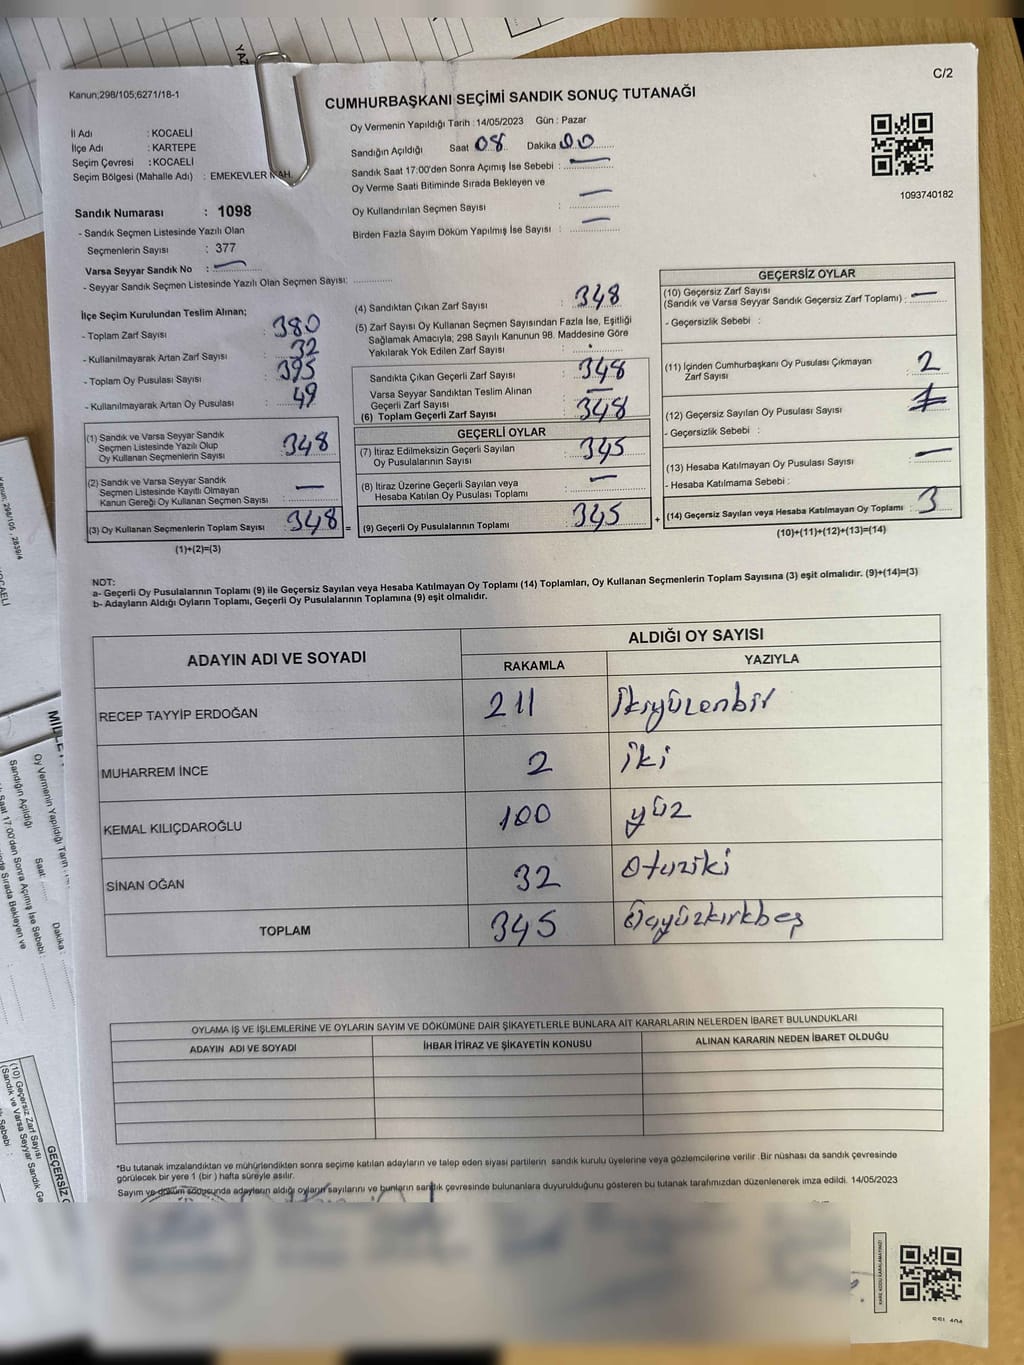 C/2
Kanun;298/105;6271/18-1
CUMHURBAŞKANI SEÇİMİ SANDIK SONUÇ TUTANAĞI
İl Adı : KOCAELİ
İlçe Adı : KARTEPE
Seçim Çevresi : KOCAELİ
Seçim Bölgesi (Mahalle Adı) : EMEKEVLER MAH.
Oy Vermenin Yapıldığı Tarih : 14/05/2023 Gün : Pazar
Sandığın Açıldığı Saat 08 Dakika 00
Sandık Saat 17:00'den Sonra Açımış İse Sebebi : —
Oy Verme Saati Bitiminde Sırada Bekleyen ve
Oy Kullandırılan Seçmen Sayısı : —
Birden Fazla Sayım Döküm Yapılmış İse Sayısı : —
1093740182
Sandık Numarası : 1098
- Sandık Seçmen Listesinde Yazılı Olan
Seçmenlerin Sayısı : 377
Varsa Seyyar Sandık No : —
- Seyyar Sandık Seçmen Listesinde Yazılı Olan Seçmen Sayısı:
İlçe Seçim Kurulundan Teslim Alınan;
- Toplam Zarf Sayısı : 380
- Kullanılmayarak Artan Zarf Sayısı : 32
- Toplam Oy Pusulası Sayısı : 395
- Kullanılmayarak Artan Oy Pusulası : 49
(1) Sandık ve Varsa Seyyar Sandık
Seçmen Listesinde Yazılı Olup
Oy Kullanan Seçmenlerin Sayısı : 348
(2) Sandık ve Varsa Seyyar Sandık
Seçmen Listesinde Kayıtlı Olmayan
Kanun Gereği Oy Kullanan Seçmen Sayısı : —
(3) Oy Kullanan Seçmenlerin Toplam Sayısı : 348 =
(1)+(2)=(3)
(4) Sandıktan Çıkan Zarf Sayısı : 348
(5) Zarf Sayısı Oy Kullanan Seçmen Sayısından Fazla İse, Eşitliği
Sağlamak Amacıyla; 298 Sayılı Kanunun 98. Maddesine Göre
Yakılarak Yok Edilen Zarf Sayısı :
Sandıkta Çıkan Geçerli Zarf Sayısı : 348
Varsa Seyyar Sandıktan Teslim Alınan
Geçerli Zarf Sayısı : —
(6) Toplam Geçerli Zarf Sayısı : 348
GEÇERLİ OYLAR
(7) İtiraz Edilmeksizin Geçerli Sayılan
Oy Pusulalarının Sayısı : 345
(8) İtiraz Üzerine Geçerli Sayılan veya
Hesaba Katılan Oy Pusulası Toplamı : —
(9) Geçerli Oy Pusulalarının Toplamı : 345 +
GEÇERSİZ OYLAR
(10) Geçersiz Zarf Sayısı
(Sandık ve Varsa Seyyar Sandık Geçersiz Zarf Toplamı) : —
- Geçersizlik Sebebi :
(11) İçinden Cumhurbaşkanı Oy Pusulası Çıkmayan
Zarf Sayısı : 2
(12) Geçersiz Sayılan Oy Pusulası Sayısı : 1
- Geçersizlik Sebebi :
(13) Hesaba Katılmayan Oy Pusulası Sayısı : —
- Hesaba Katılmama Sebebi :
(14) Geçersiz Sayılan veya Hesaba Katılmayan Oy Toplamı : 3
(10)+(11)+(12)+(13)=(14)
NOT:
a- Geçerli Oy Pusulalarının Toplamı (9) ile Geçersiz Sayılan veya Hesaba Katılmayan Oy Toplamı (14) Toplamları, Oy Kullanan Seçmenlerin Toplam Sayısına (3) eşit olmalıdır. (9)+(14)=(3)
b- Adayların Aldığı Oyların Toplamı, Geçerli Oy Pusulalarının Toplamına (9) eşit olmalıdır.
ADAYIN ADI VE SOYADI
ALDIĞI OY SAYISI
RAKAMLA YAZIYLA
RECEP TAYYİP ERDOĞAN 211 ikiyüzonbir
MUHARREM İNCE 2 iki
KEMAL KILIÇDAROĞLU 100 yüz
SİNAN OĞAN 32 Otuziki
TOPLAM 345 Üçyüzkırkbeş
OYLAMA İŞ VE İŞLEMLERİNE VE OYLARIN SAYIM VE DÖKÜMÜNE DAİR ŞİKAYETLERLE BUNLARA AİT KARARLARIN NELERDEN İBARET BULUNDUKLARI
ADAYIN ADI VE SOYADI İHBAR İTİRAZ VE ŞİKAYETİN KONUSU ALINAN KARARIN NEDEN İBARET OLDUĞU
*Bu tutanak imzalandıktan ve mühürlendikten sonra seçime katılan adayların ve talep eden siyasi partilerin sandık kurulu üyelerine veya gözlemcilerine verilir .Bir nüshası da sandık çevresinde
görülecek bir yere 1 (bir ) hafta süreyle asılır.
Sayım ve döküm sonucunda adayların aldığı oyların sayılarını ve bunların sandık çevresinde bulunanlara duyurulduğunu gösteren bu tutanak tarafımızdan düzenlenerek imza edildi. 14/05/2023